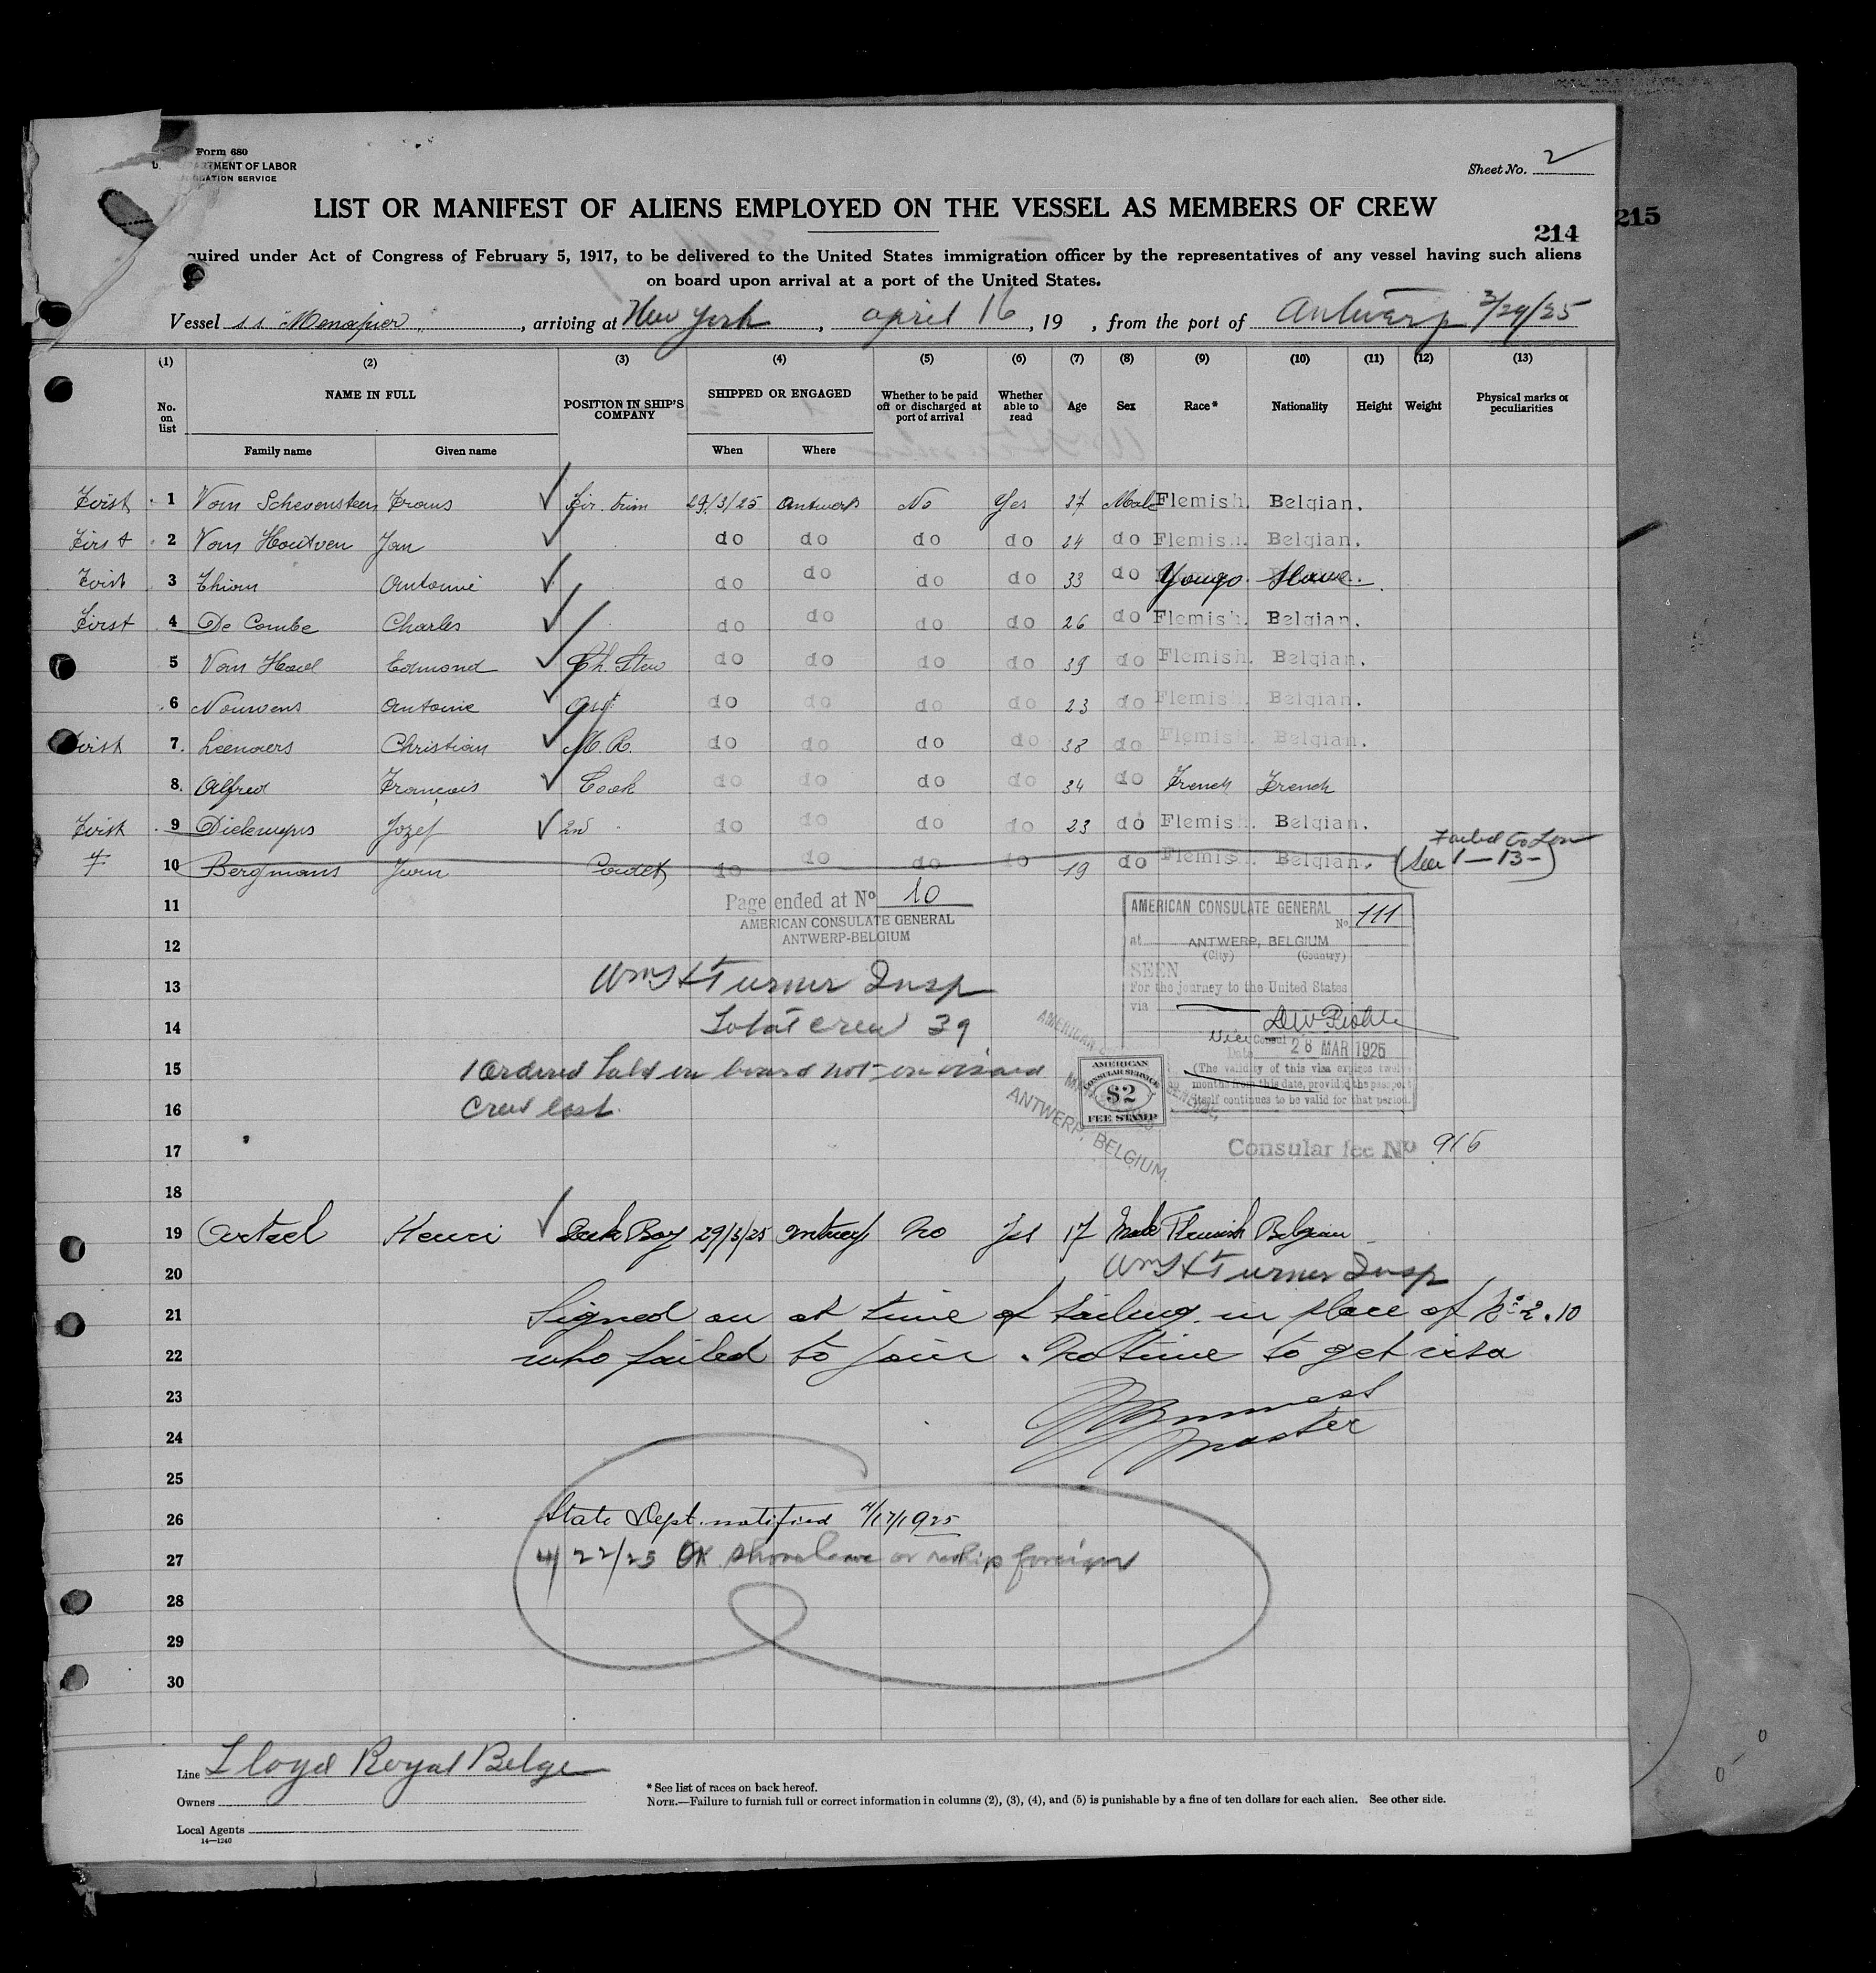 Form 680
DEPARTMENT OF LABOR
IMMIGRATION SERVICE
Sheet No. 2
LIST OR MANIFEST OF ALIENS EMPLOYED ON THE VESSEL AS MEMBERS OF CREW
214
215
quired under Act of Congress of February 5, 1917, to be delivered to the United States immigration officer by the representatives of any vessel having such aliens
on board upon arrival at a port of the United States.
Vessel s s Menapier, arriving at New York, april 16, 19 , from the port of Antwerp 3/29/25
(1) (2) (3) (4) (5) (6) (7) (8) (9) (10) (11) (12) (13)
No. on list NAME IN FULL POSITION IN SHIP'S COMPANY SHIPPED OR ENGAGED Whether to be paid off or discharged at port of arrival Whether able to read Age Sex Race* Nationality Height Weight Physical marks or peculiarities
Family name Given name When Where
First 1 Van Schevensteen Frans Fir. trim 29/3/25 Antwerp No Yes 37 Male Flemish. Belgian.
First 2 Van Houtven Jan do do do do 24 do Flemish. Belgian.
First 3 Antonie do do do do 33 do Yougo Slave.
First 4 De Combe Charles do do do do 26 do Flemish. Belgian.
5 Edmond Ch. Stew do do do do 39 do Flemish. Belgian.
6 Nouwens Antoine Asst do do do do 23 do Flemish. Belgian.
First 7. Leenaers Christian M. R. do do do do 38 do Flemish. Belgian.
8. Alfred François Cook do do do do 34 do French French
First 9 Jozef 2nd do do do do 23 do Flemish. Belgian.
10 Bergmans Cadet do do do do 19 do Flemish. Belgian. Failed to Join
(See 1-13-)
11
Page ended at No 10
AMERICAN CONSULATE GENERAL
ANTWERP-BELGIUM
AMERICAN CONSULATE GENERAL
No. 111
at ANTWERP, BELGIUM
(City) (Country)
SEEN
For the journey to the United States
via
Vice Consul
Date 28 MAR 1925
(The validity of this visa expires twelve
months from this date, provided the passport
itself continues to be valid for that period.
12
13 Turner Insp
14 Total crew 39
15 1 Ordered held on board not on visaed
16 Crew list.
AMERICAN CONSULAR SERVICE
$2
FEE STAMP
ANTWERP, BELGIUM.
17 Consular fee No 916
18
19 Henri Deck Boy 29/3/25 Antwerp No Yes 17 Male Flemish Belgian
20 Turner Insp
21 Signed on at time of sailing in place of No 2.10
22 who failed to join. No time to get visa
23
24 Master
25
26 State Dept. notified 4/17/1925
27 4/22/25 OK shore leave or reship foreign
28
29
30
Line Lloyd Royal Belge
Owners
Local Agents
14—1240
* See list of races on back hereof.
NOTE.—Failure to furnish full or correct information in columns (2), (3), (4), and (5) is punishable by a fine of ten dollars for each alien. See other side.